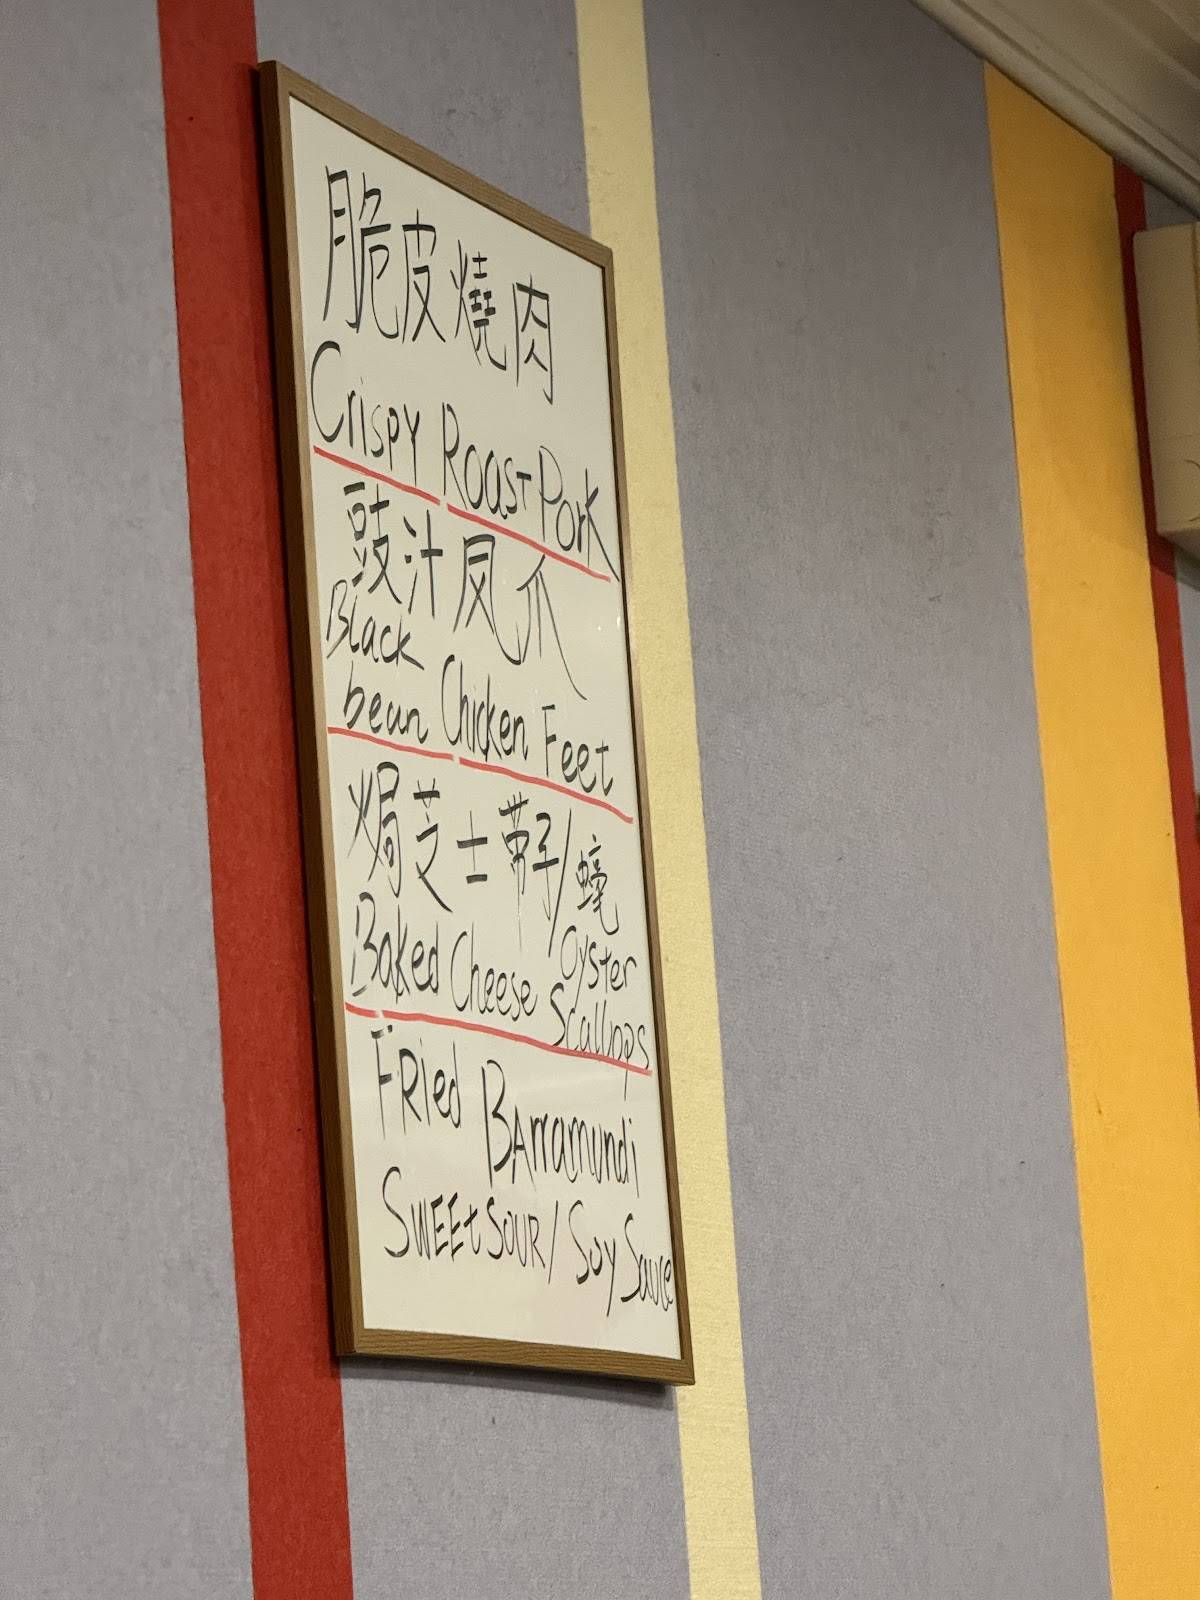 脆皮燒肉
Crispy Roast Pork
豉汁凤爪
Black
bean Chicken Feet
焗芝士帶子/蠔
Baked Cheese Oyster
Scallops
FRied BArramundi
SWEEt SOUR / Soy Sauce